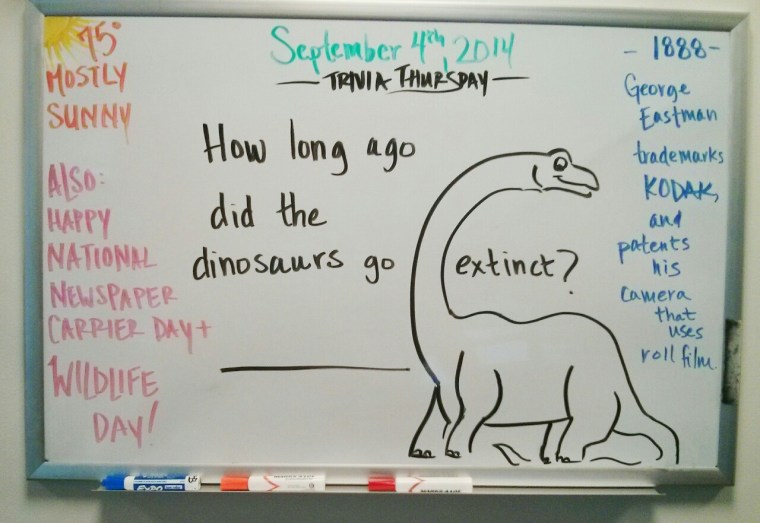 75°
MOSTLY
SUNNY
ALSO:
HAPPY
NATIONAL
NEWSPAPER
CARRIER DAY +
WILDLIFE
DAY!
September 4th, 2014
— TRIVIA THURSDAY —
How long ago
did the
dinosaurs go extinct?
- 1888 -
George
Eastman
trademarks
KODAK,
and
patents
his
camera
that
uses
roll film.
EXPO